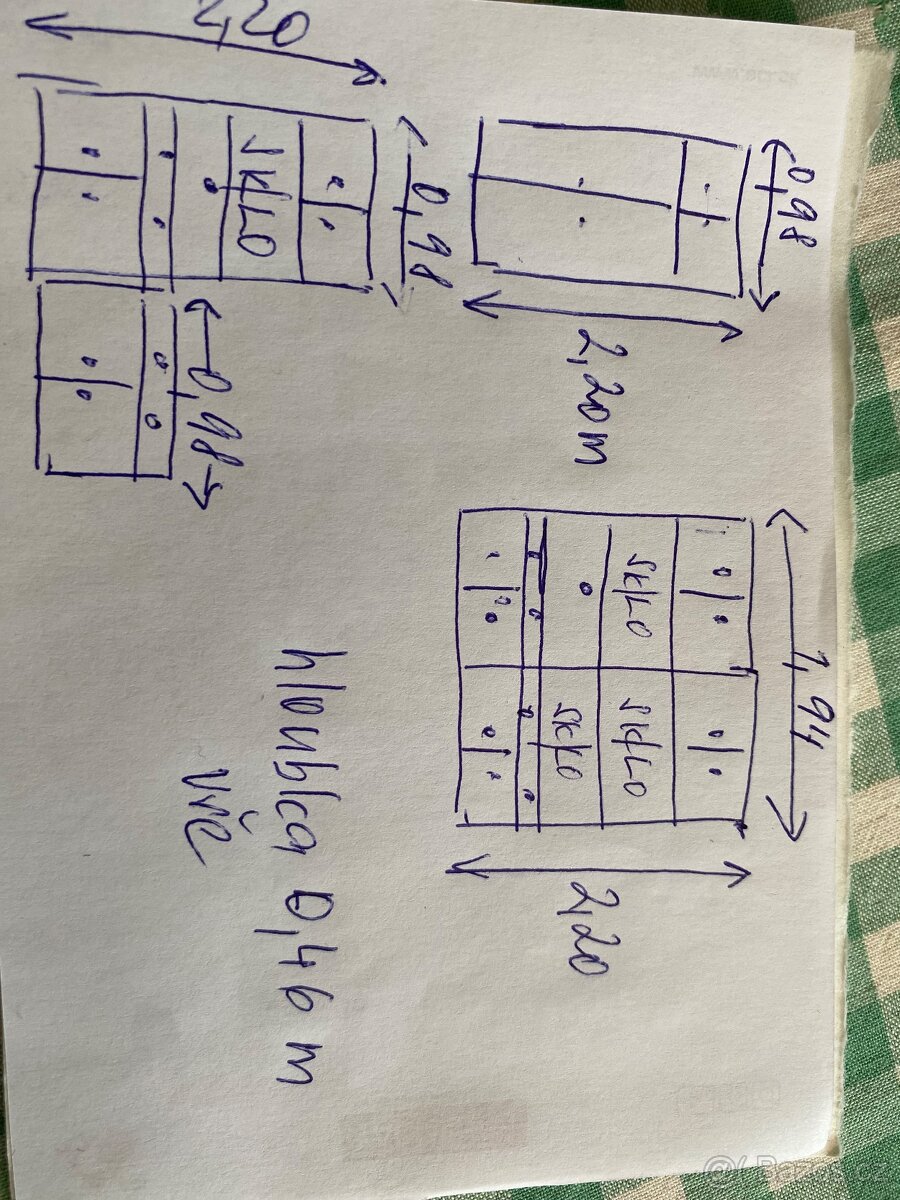 0,98
1,94
2,20m
SKLO
SKLO
SKLO
2,20
0,98
SKLO
2,20
0,98
hloubka 0,46 m
vše